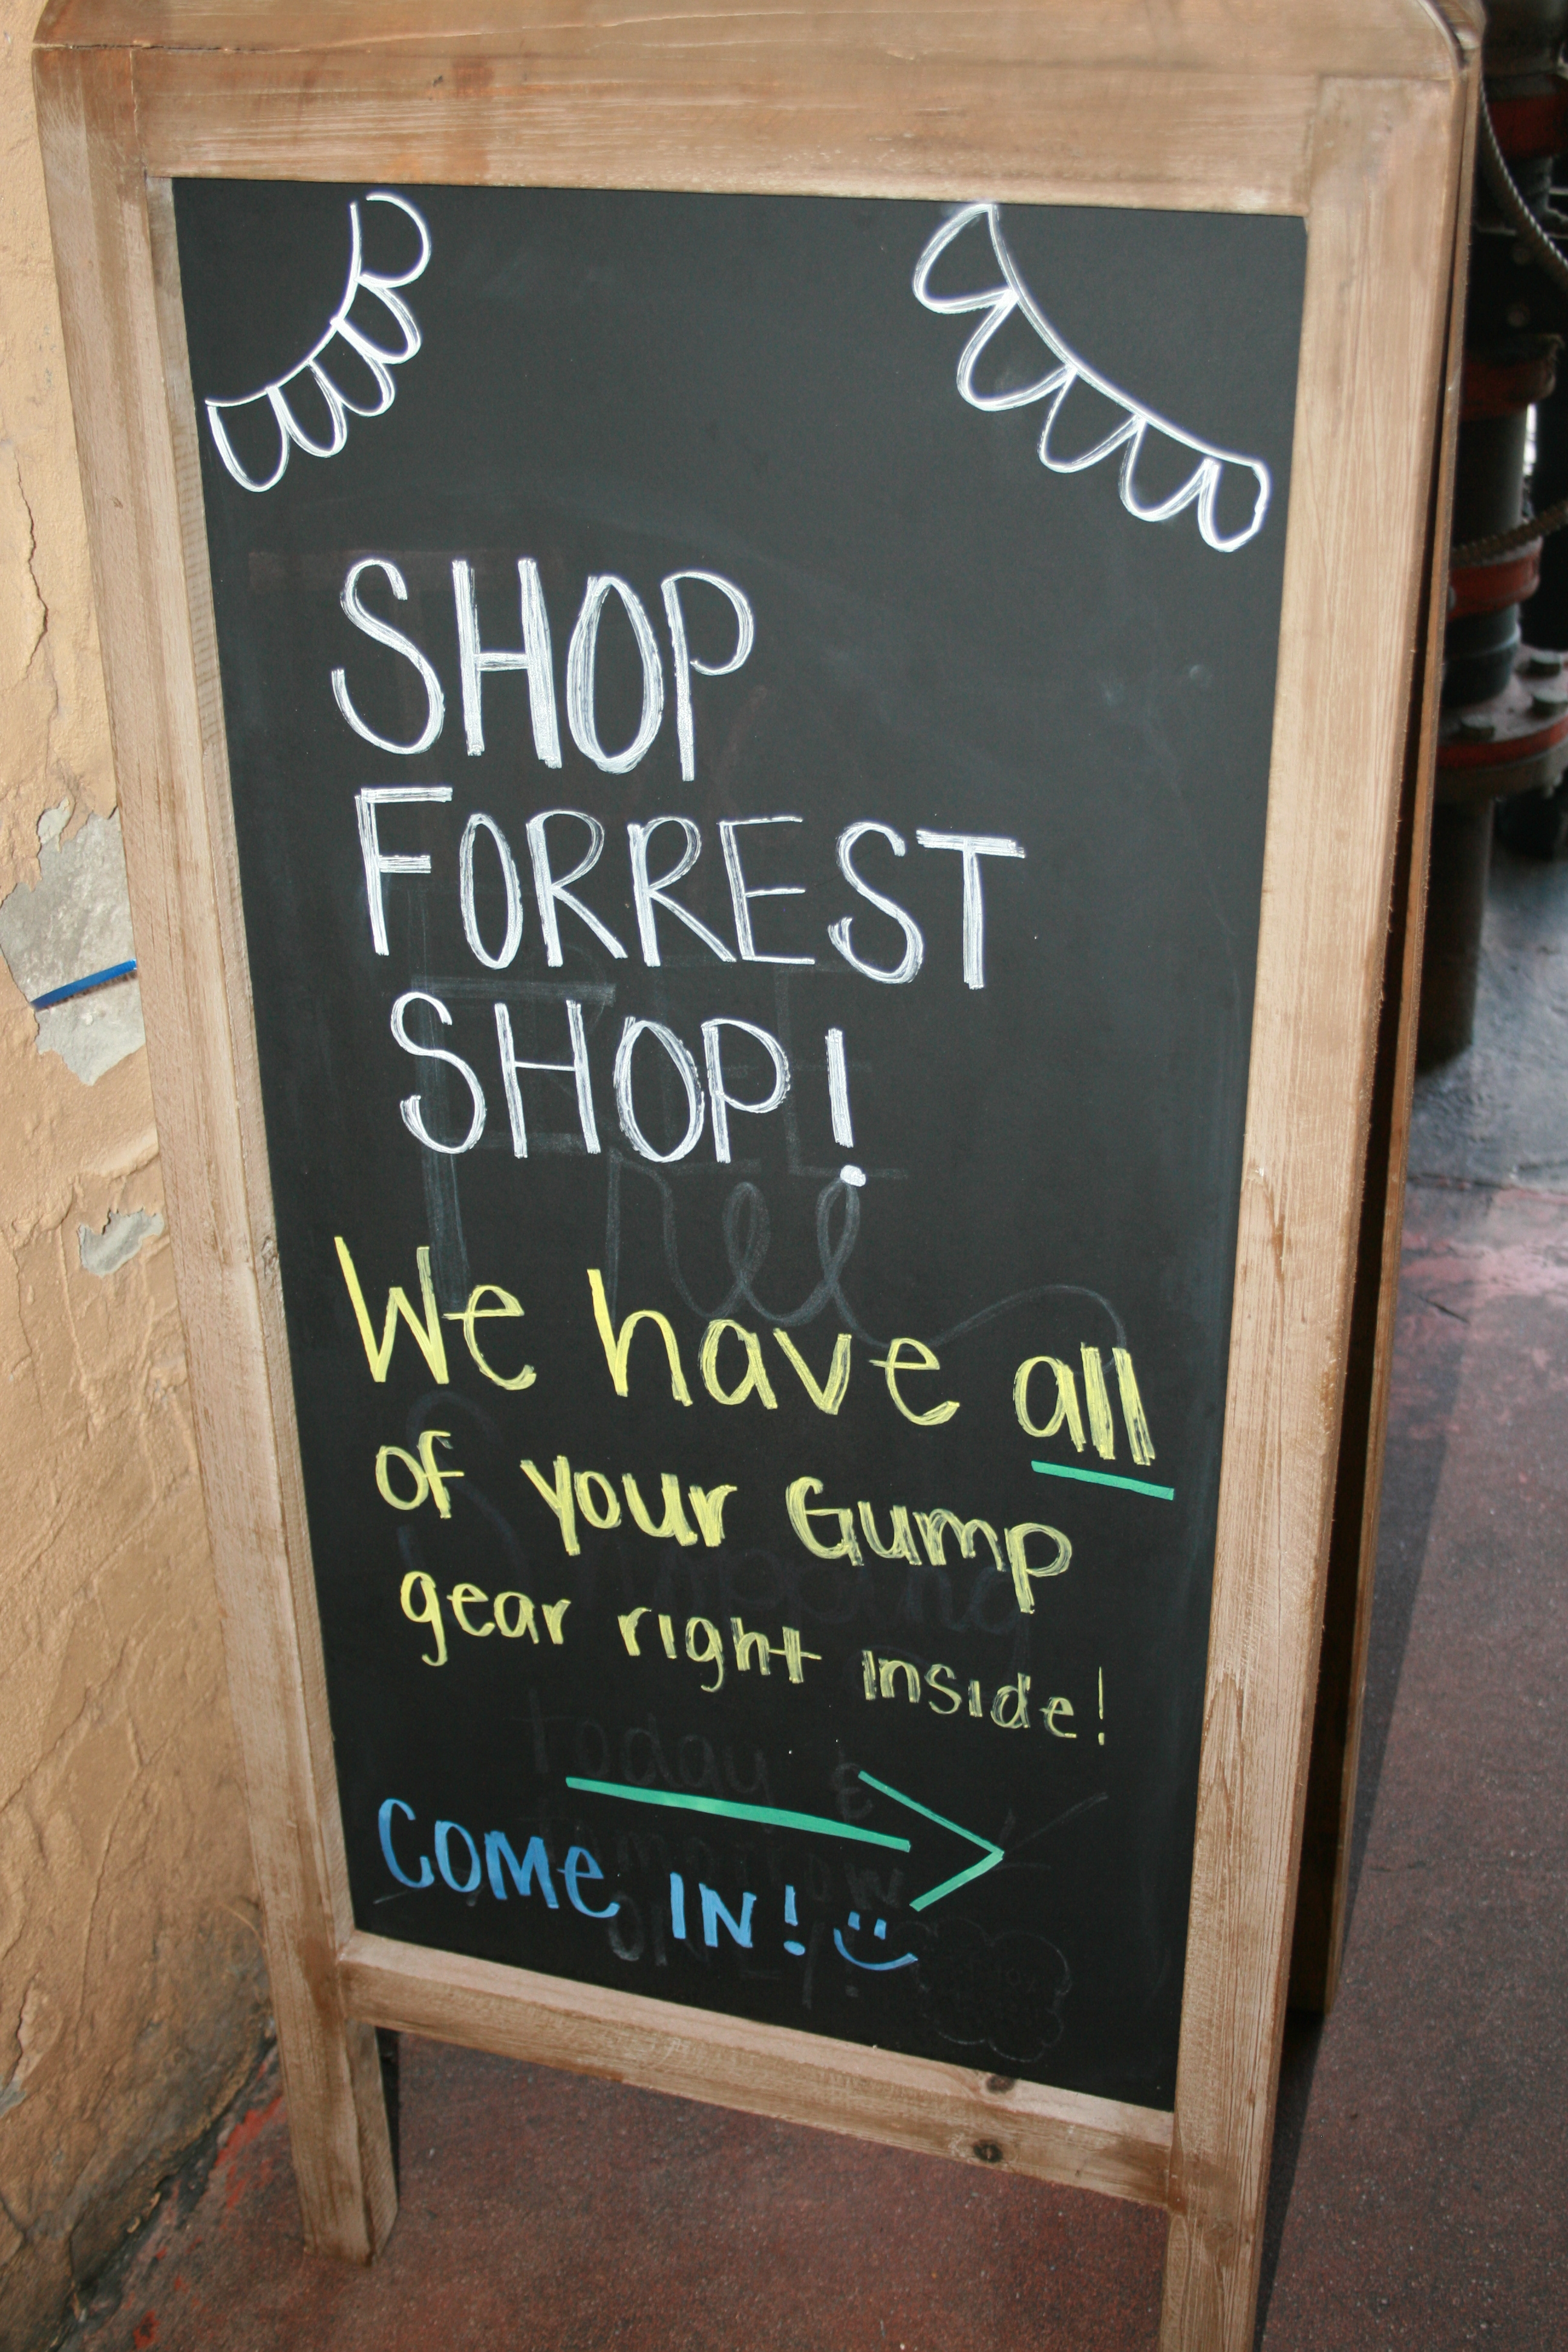 SHOP
FORREST
SHOP!
We have all
of your Gump
gear right inside!
COME IN!